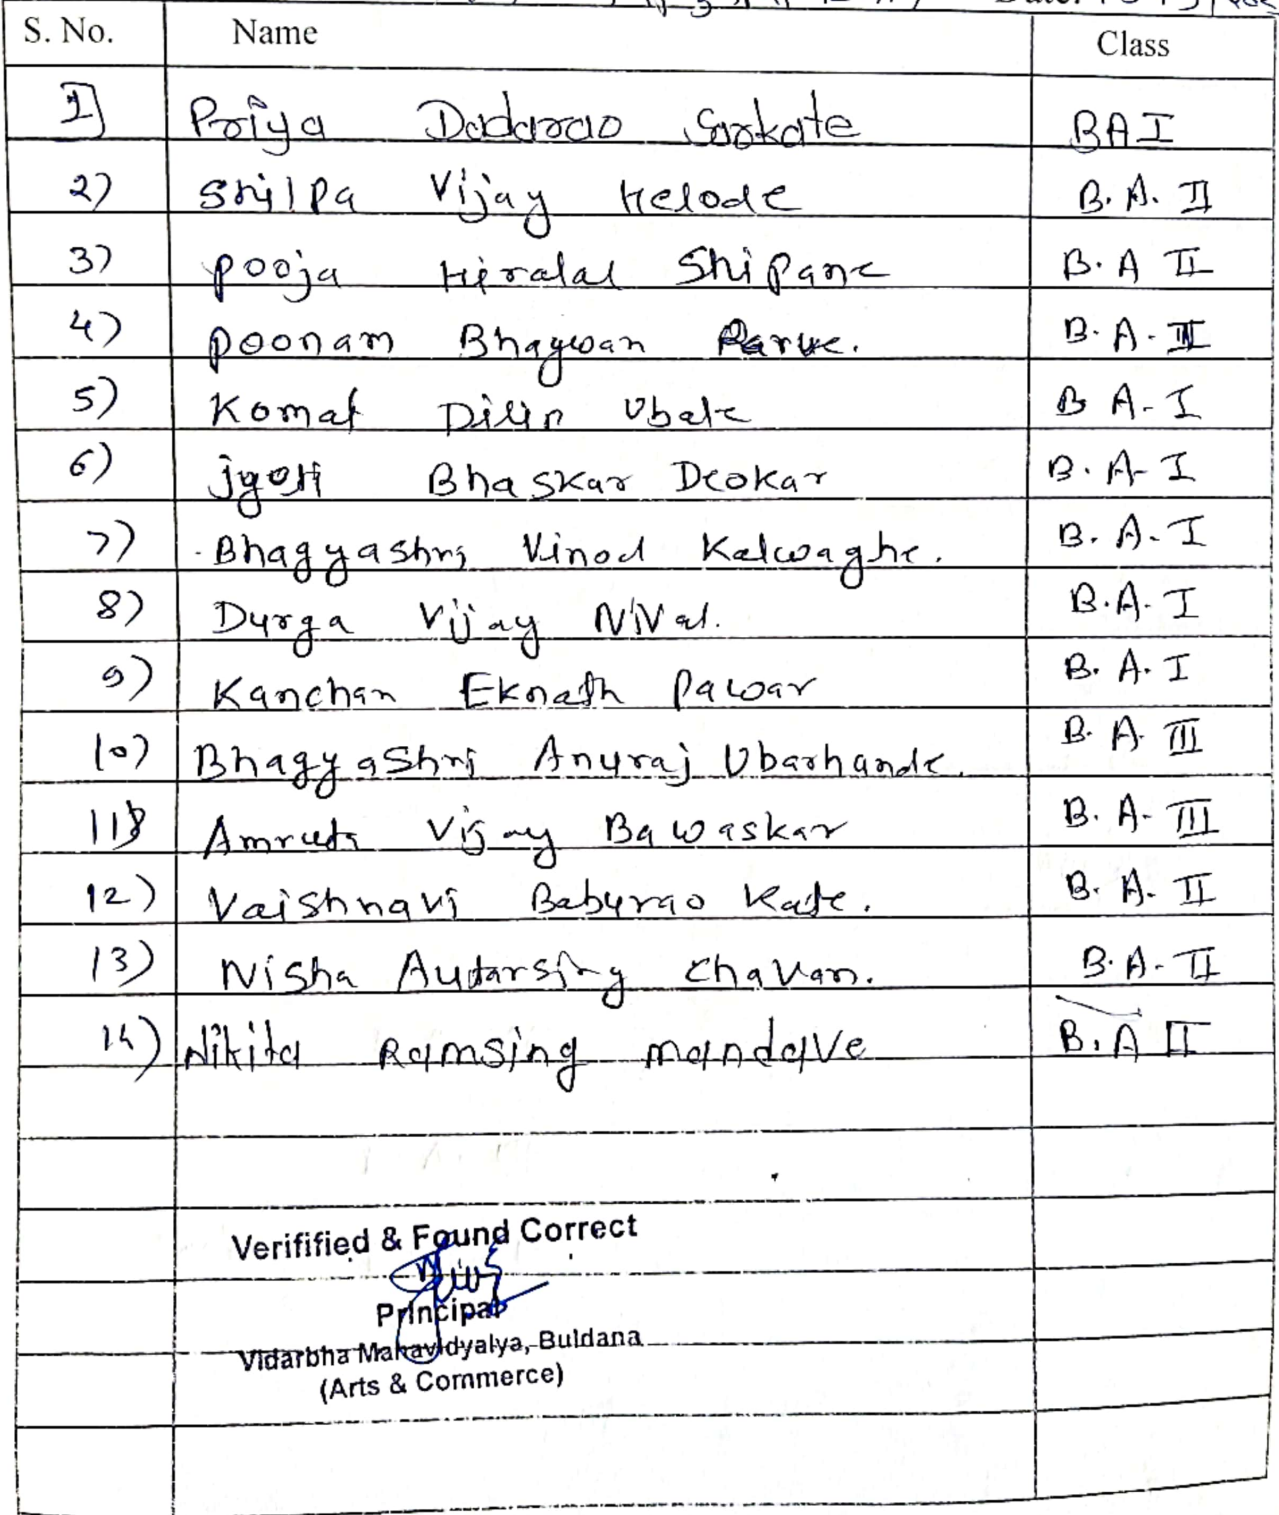 Date:
S. No. Name Class
1] Priya Dadarao Sarkate BA I
2) Shilpa Vijay Helode B. A. II
3) pooja Hiralal Shipane B. A II
4) poonam Bhagwan Parve. B. A. II
5) Komal Dilip Ubale B A- I
6) jyoti Bhaskar Deokar B. A- I
7) Bhagyashri Vinod Kalwaghe. B. A. I
8) Durga Vijay B.A. I
9) Kanchan Eknath Pawar B. A. I
10) Bhagyashri Anuraj Ubarhande. B. A. III
11) Amruta Vijay Bawaskar B. A- III
12) Vaishnavi Baburao Kate. B. A. II
13) Nisha Autarsing Chavan. B. A- II
14) Nikita Ramsing mandave B. A II
Verifified & Found Correct
Principal
Vidarbha Mahavidyalya, Buldana
(Arts & Commerce)